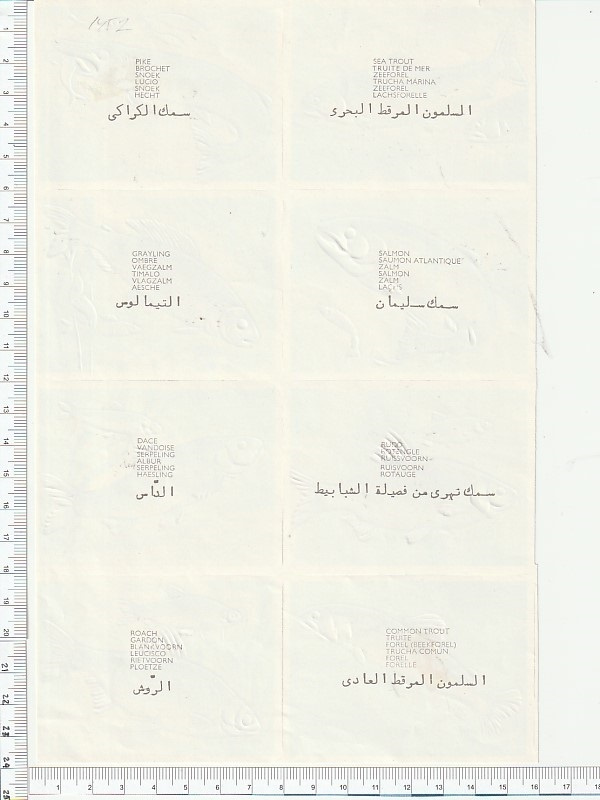 1452
PIKE
BROCHET
SNOEK
LUCIO
SNOEK
HECHT
سمك الكراكى
SEA TROUT
TRUITE DE MER
ZEEFOREL
TRUCHA MARINA
ZEEFOREL
LACHSFORELLE
السلمون المرقط البحرى
GRAYLING
OMBRE
VAEGZALM
TIMALO
VLAGZALM
AESCHE
التيمالوس
SALMON
SAUMON ATLANTIQUE
ZALM
SALMON
ZALM
سمك سليمان
DACE
VANDOISE
SERPELING
ALBUR
SERPELING
HAESLING
الدّاس
RUDD
ROTENGLE
RUISVOORN
RUISVOORN
ROTAUGE
سمك نهرى من فصيلة الشبابيط
ROACH
GARDON
BLANKVOORN
LEUCISCO
RIETVOORN
PLOETZE
الرّوش
COMMON TROUT
TRUITE
FOREL (BEEKFOREL)
TRUCHA COMUN
FOREL
FORELLE
السلمون المرقط العادى
1 2 3 4 5 6 7 8 9 10 11 12 13 14 15 16 17 18 19 20 21 22 23 24 25
1 2 3 4 5 6 7 8 9 10 11 12 13 14 15 16 17 18